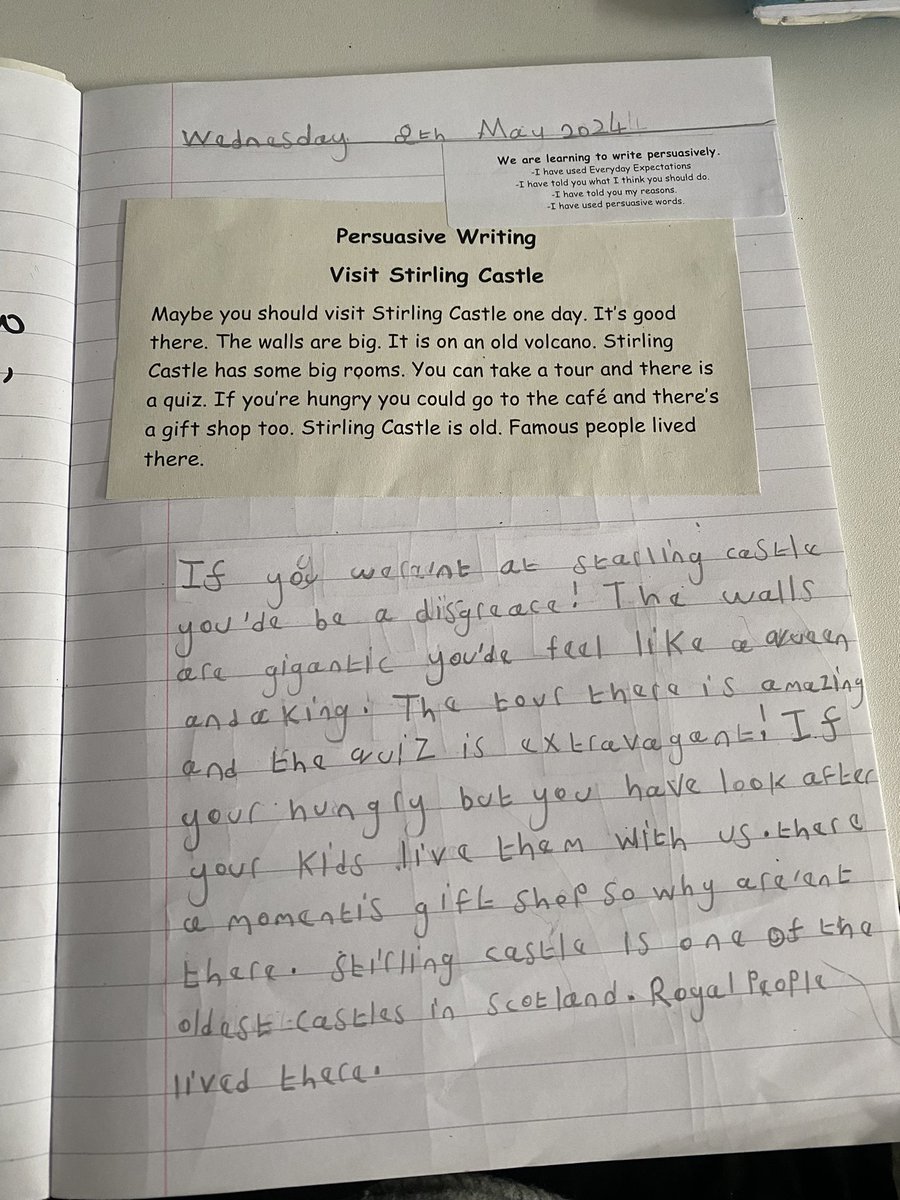 Wednesday 8th May 2024
We are learning to write persuasively.
-I have used Everyday Expectations
-I have told you what I think you should do.
-I have told you my reasons.
-I have used persuasive words.
Persuasive Writing
Visit Stirling Castle
Maybe you should visit Stirling Castle one day. It's good
there. The walls are big. It is on an old volcano. Stirling
Castle has some big rooms. You can take a tour and there is
a quiz. If you're hungry you could go to the café and there's
a gift shop too. Stirling Castle is old. Famous people lived
there.
If you werint at starling castle
you'de be a disgreace! The walls
are gigantic you'de feel like a queen
and a king. The tour there is amazing
and the quiz is extravagent! If
your hungry but you have look after
your kids live them with us. there
a momentis gift shop so why are'ent
there. Stirling castle is one of the
oldest castles in scotland. Royal People
lived there.